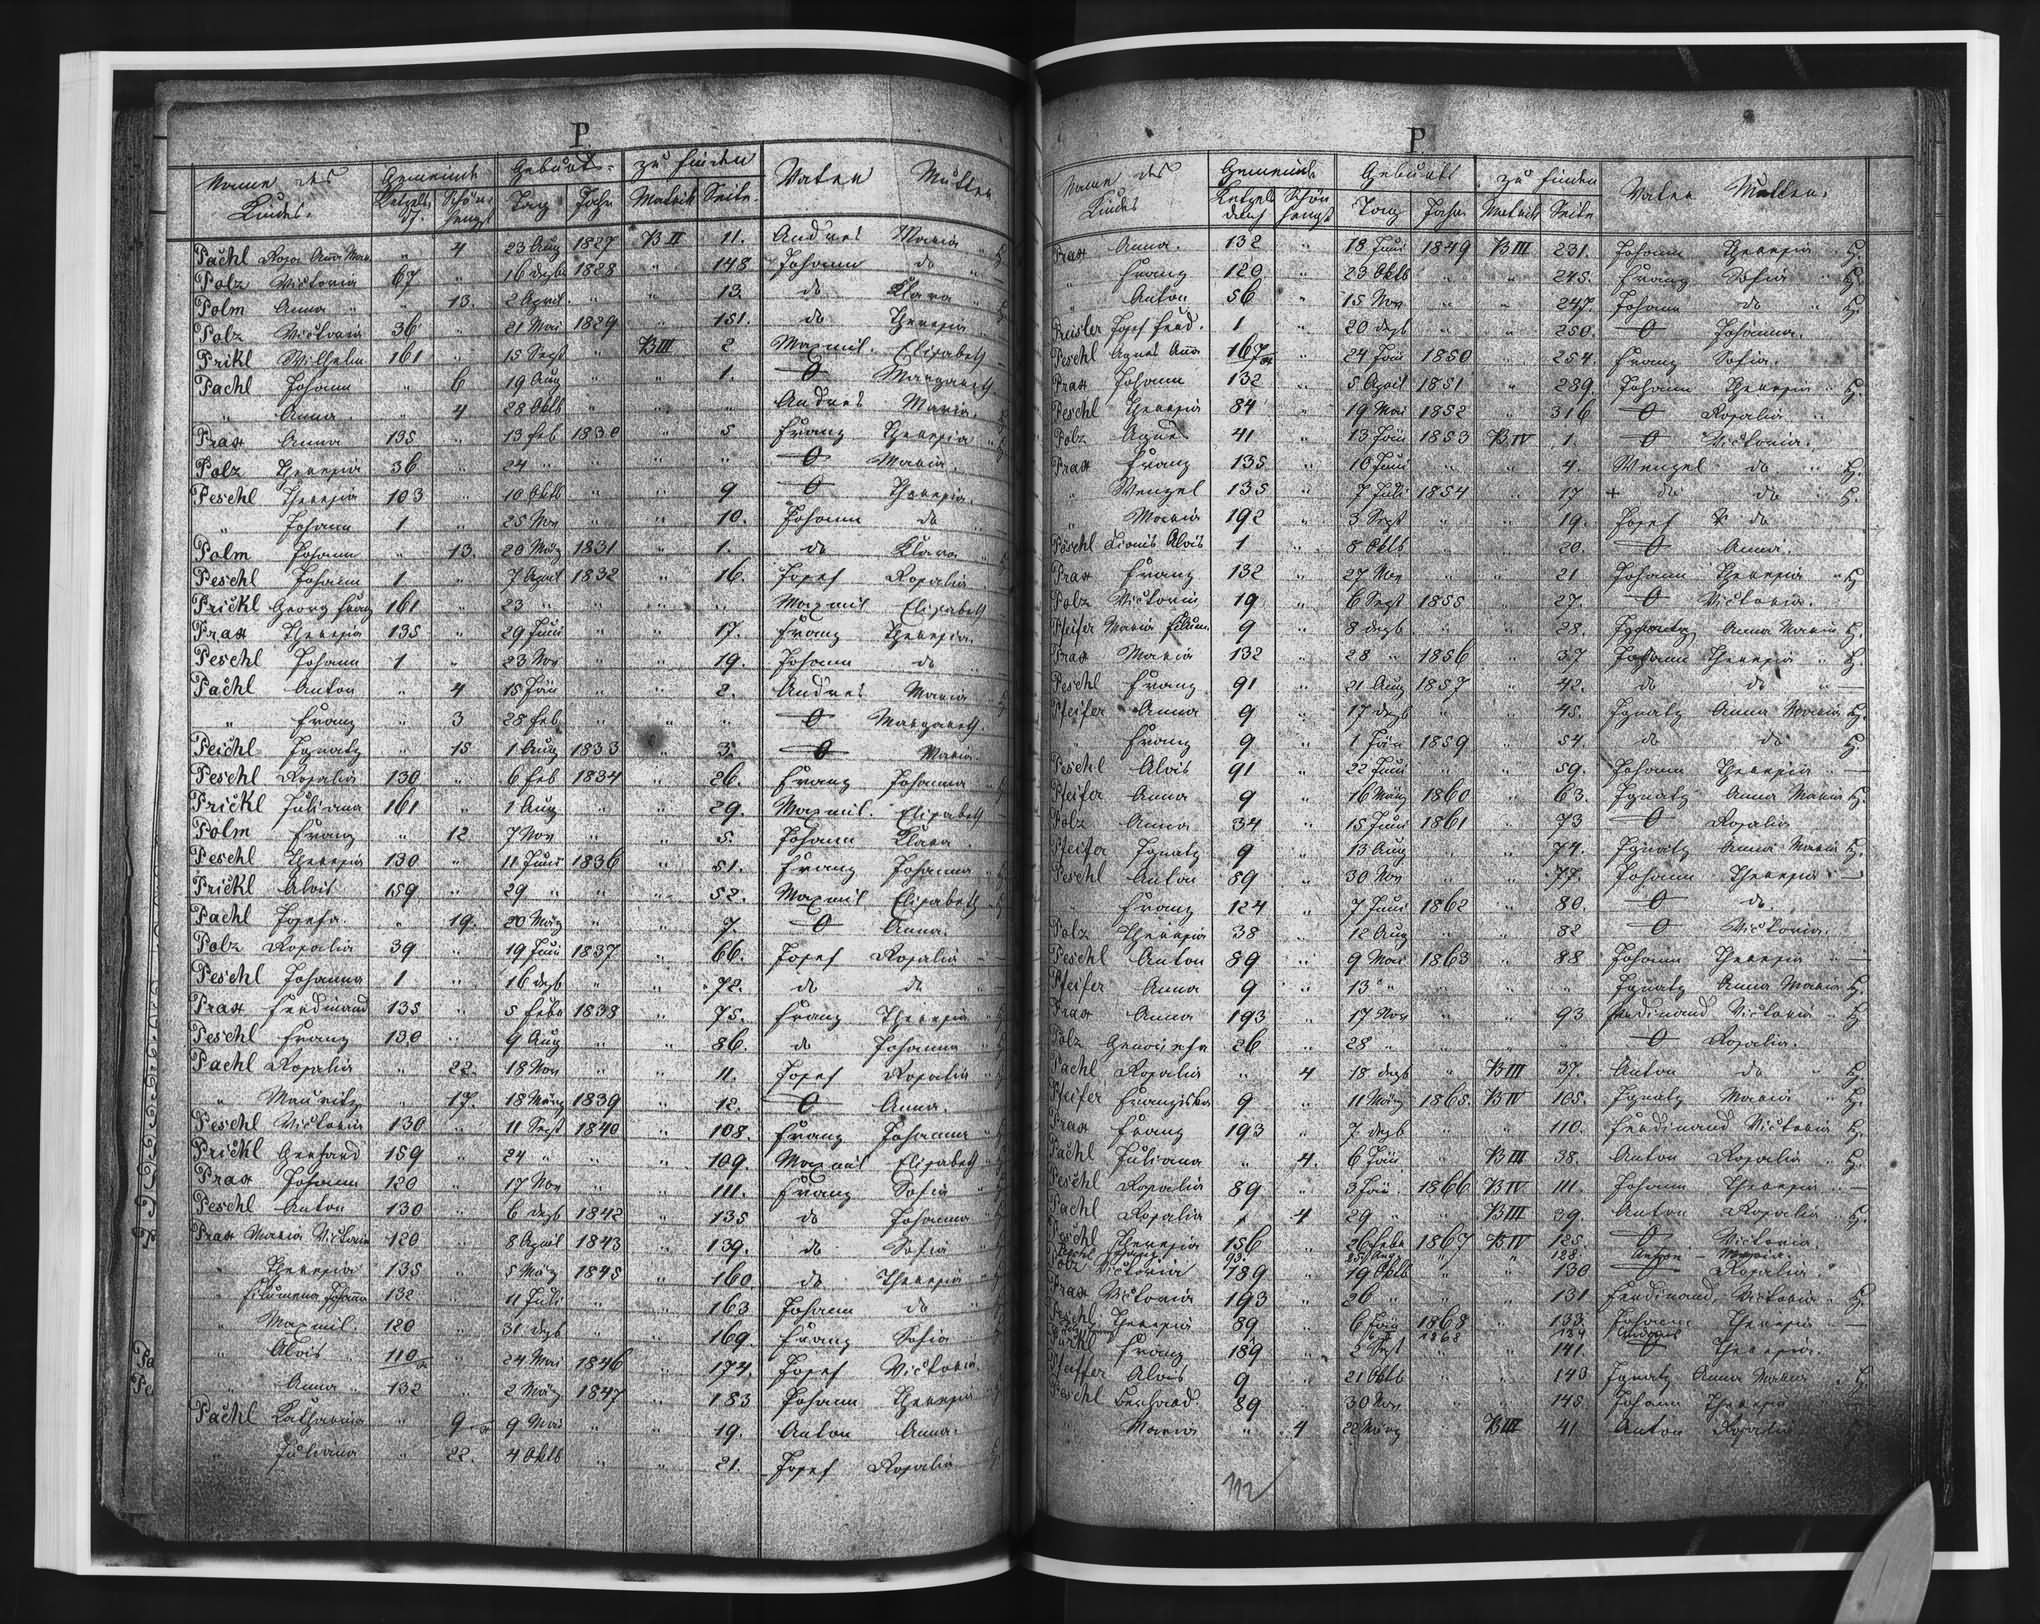 P.
Name des Kindes. Gemeinde Geburts- zu finden Vater Mutter
Ketzelsdf. Schönhengst Tag Jahr Matrik Seite.
Pachl Rosa Anna Mar. " 4 23 Aug 1827 B II 11. Andres Maria
Polz Victoria 67 " 16 dezb 1828 " 148 Johann do
Polm Anna " 13. 2 April " " 13. do Klara
Polz Victoria 36 " 21 Mai 1829 " 151. do Theresia
Prikl Wilhelm 161 " 15 Sept " B III 2 Maxmil. Elisabeth
Pachl Johann " 6 19 Aug " " 1. O Margareth
" Anna " 4 28 Oktb " " " Andres Maria
Prax Anna 135 " 13 feb 1830 " 5 Franz Theresia
Polz Theresia 36 " 24 " " " " O Maria.
Peschl Theresia 103 " 10 Oktb " " 9 O Theresia
" Johann 1 " 25 Nov " " 10. Johann do
Polm Johann " 13. 20 März 1831 " 1. do Klara
Peschl Johann 1 " 7 April 1832 " 16. Josef Rosalia
Prickl Georg Franz 161 " 23 " " " " Maxmil Elisabeth
Prax Theresia 135 " 29 Juni " " 17. Franz Theresia.
Peschl Johann 1 " 23 Nov " " 19. Johann do
Pachl Anton " 4 15 Jän " " 2. Andres Maria
" Franz " 3 28 feb " " " O Margareth.
Peichl Ignatz " 15 1 Aug 1833 " 3. O Maria.
Peschl Rosalia 130 " 6 feb 1834 " 26. Franz Johanna
Prickl Juliana 161 " 1 Aug " " 29. Maxmil. Elisabeth
Polm Franz " 12. 7 Nov " " 5. Johann Klara
Peschl Theresia 130 " 11 Juni 1836 " 51. Franz Johanna
Prickl Alois 159 " 29 " " " 52. Maxmil Elisabeth
Pachl Josefa. " 19. 20 März " " 7. O Anna.
Polz Rosalia 39 " 19 Juni 1837 " 66. Josef Rosalia
Peschl Johanna 1 " 16 dezb " " 72. do do
Prax Ferdinand 135 " 5 febr 1838 " 75. Franz Theresia
Peschl Franz 130 " 9 Aug " " 86. do Johanna
Pachl Rosalia " 22. 18 Nov " " 11. Josef Rosalia
" Mauritz " 17. 18 März 1839 " 12. O Anna.
Peschl Victoria 130 " 11 Sept 1840 " 108. Franz Johanna
Prickl Gerhard 159 " 24 " " " 109. Maxmil Elisabeth
Prax Johann 120 " 17 Nov " " 111. Franz Sofia
Peschl Anton 130 " 6 dezb 1842 " 135 do Johanna
Prax Maria Victoria 120 " 8 April 1843 " 139. do Sofia
" Theresia 135 " 5 März 1845 " 160 do Theresia
" Filumena Johanna 132 " 11 Juli " " 163 Johann do
" Maxmil. 120 " 31 dezb " " 169. Franz Sofia
" Alois 110 " 24 Mai 1846 " 174. Josef Victoria
" Anna " 132 " 2 März 1847 " 183 Johann Theresia
Pachl Katharina " 9 9 Mai " " 19. Anton Anna.
" Juliana " 22. 4 Oktb " " 21. Josef Rosalia
P
Name des Kindes Gemeinde Geburts zu finden Vater Mutter.
Ketzelsdorf Schönhengst Tag Jahr Matrik Seite
Prax Anna. 132 " 18 Juni 1849 B III 231. Johann Theresia " H.
" Franz 120 " 23 Oktb " " 245. Franz Sofia " H.
" Anton 56 " 15 Nov " " 247. Johann do " H.
Preisler Josef Ferd. 1 " 20 dezb " " 250. O Johanna.
Peschl Agnes Anna 167 " 24 Jän 1850 " 254. Franz Sofia.
Prax Johann 132 " 5 April 1851 " 289. Johann Theresia " H.
Peschl Theresia 84 " 19 Mai 1852 " 316 O Rosalia "
Polz Agnes 41 " 13 Jän 1853 B IV 1. O Victoria.
Prax Franz 135 " 10 Juni " " 4. Wenzel do " H.
" Wenzel 135 " 7 Juli 1854 " 17 + do do " H.
" Maria 192 " 3 Sept " " 19. Josef do
Pöschl Dionis Alois 1 " 8 Oktb " " 20. O Anna.
Prax Franz 132 " 27 Nov " " 21 Johann Theresia " H
Polz Victoria 19 " 6 Sept 1855 " 27. O Victoria.
Pfeifer Maria Filum. 9 " 8 dezb " " 28. Ignatz Anna Maria H.
Prax Maria 132 " 28 " 1856 " 37 Johann Theresia " H.
Peschl Franz 91 " 21 Aug 1857 " 42. do do " —
Pfeifer Anna 9 " 17 dezb " " 45. Ignatz Anna Maria H.
" Franz 9 " 1 Jän 1859 " 54. do do H.
Peschl Alois 91 " 22 Juni " " 59. Johann Theresia " —
Pfeifer Anna 9 " 16 März 1860 " 63. Ignatz Anna Maria H.
Polz Anna 34 " 15 Juni 1861 " 73 O Rosalia
Pfeifer Ignatz 9 " 13 Aug " " 74. Ignatz Anna Maria H.
Peschl Anton 89 " 30 Nov " " 77. Johann Theresia —
Franz 124 " 7 Juni 1862 " 80. O do.
Polz Theresia 38 " 12 Aug " " 82 O Victoria.
Peschl Anton 89 " 9 Mai 1863 " 88 Johann Theresia " —
Pfeifer Anna 9 " 13 " " " " Ignatz Anna Maria H.
Prax Anna 193 " 17 Nov " " 93 Ferdinand Victoria " H
Polz Genovefa 26 " 28 " " " " O Rosalia.
Pachl Rosalia " 4 18 dezb " B III 37. Anton do " H.
Pfeifer Franziska 9 " 11 März 1865 B IV 105. Ignatz Maria " H.
Prax Franz 193 " 7 dezb " " 110. Ferdinand Victoria H.
Pachl Juliana " 4. 6 Jän " B III 38. Anton Rosalia " H.
Peschl Rosalia 89 " 3 Jän 1866 B IV 111. Johann Theresia " —
Pachl Rosalia " 4 29 " " B III 39. Anton Rosalia " H.
Peschl Theresia 156 " 26 febr 1867 B IV 125. O Victoria
93. 25 Aug " " 128. Anton — Maria.
Polz Victoria 189 " 19 Oktb " " 130 O Rosalia.
Prax Victoria 193 " 26 " " " 131 Ferdinand Victoria " H.
Peschl Theresia 89 " 6 Jän 1868 " 133 Johann Theresia " —
1868 134
Franz 189 " 2 Sept " " 141. O Theresia.
Pfeiffer Alois 9 " 21 Oktb " " 143 Ignatz Anna Maria " H.
Peschl Bernhard 89 " 30 Nov " " 145. Johann Theresia
" Maria " 4 22 März " B III 41 Anton Rosalia
112